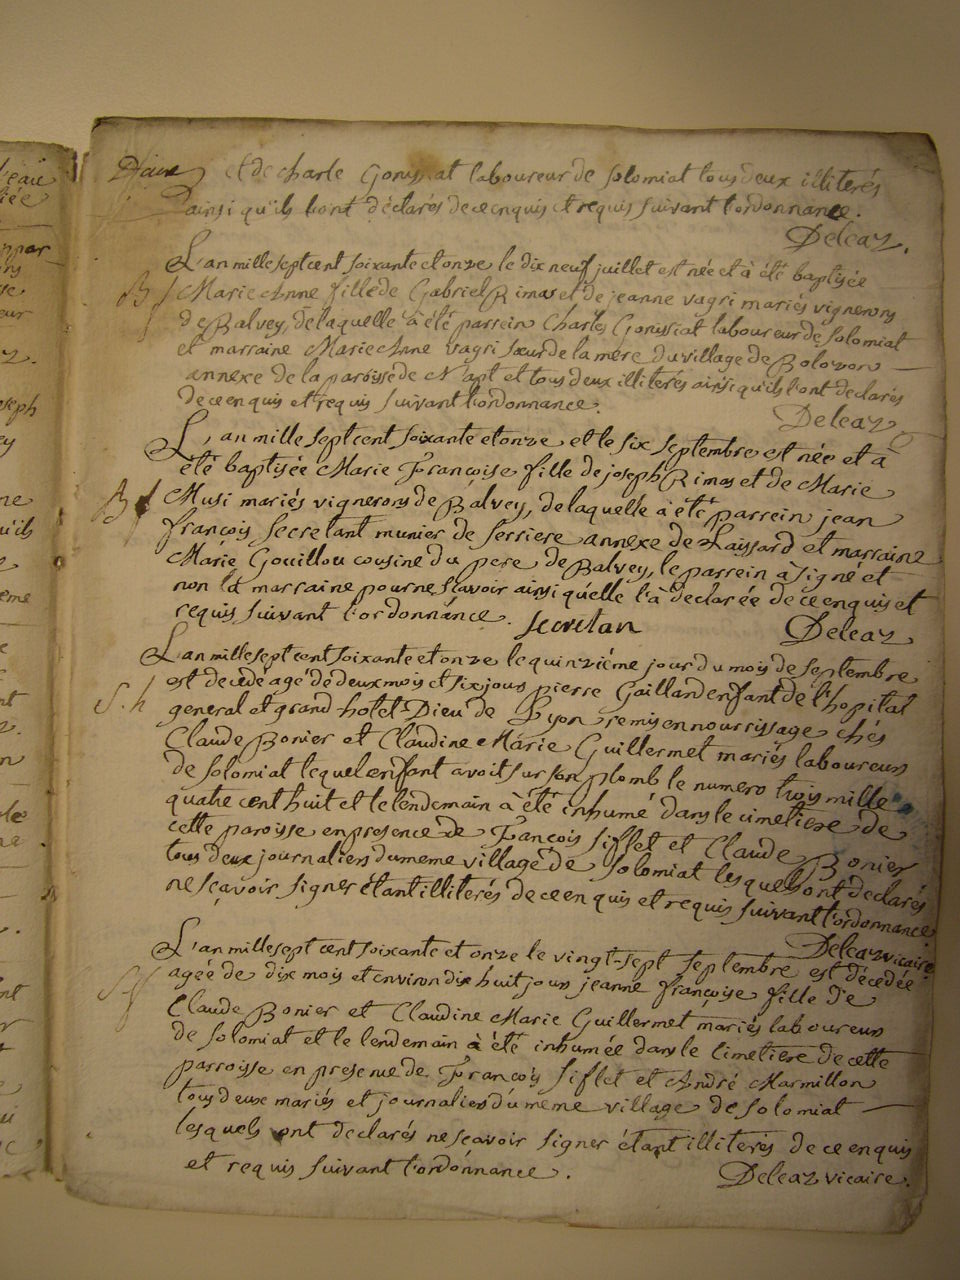 et de charle Gonissiat laboureur de solomiat tous deux illiterés
ainsi qu'ils l'ont déclarés de ce enquis et requis suivant l'ordonnance.
Deleaz.
L'an mille sept cent soixante et onze le dix neuf juillet est née et à été baptisée
B f Marie Anne fille de Gabriel Rimas et de jeanne vagri mariés vignerons
de Balvey, de laquelle à été parrein Charles Gonissiat laboureur de solomiat
et marraine Marie Anne vagri sœur de la mère du village de Bolozon
annexe de la paroisse de N'apt et tous deux illiterés ainsi qu'ils l'ont declarés
de ce enquis et requis suivant l'ordonnance.
Deleaz
L'an mille sept cent soixante et onze et le six septembre est née et à
été baptisée Marie Françoise fille de joseph Rimas et de Marie
B f Musi mariés vignerons de Balvey, de laquelle à été parrein jean
françois secretant munier de serriere annexe de Laissard et marraine
Marie Gouillou cousine du pere de Balvey, le parrein à signé et
non la marraine pour ne scavoir ainsi qu'elle l'à declarée de ce enquis et
requis suivant l'ordonnance. secretan Deleaz
L'an mille sept cent soixante et onze le quinzième jour du mois de septembre
S. h est decedé agé de deux mois et six jours pierre Gaillard enfant de l'hopital
general et grand hotel Dieu de Lyon remis en nourrissage chés
Claude Bonier et Claudine Marie Guillermet mariés laboureurs
de solomiat lequel enfant avoit sur son plomb le numero trois mille
quatre cent huit et le lendemain à été inhumé dans le cimetiere de
cette paroisse en presence de François sifflet et Claude Bonier
tous deux journaliers du meme village de solomiat lesquels ont declarés
ne sçavoir signer étant illiterés de ce enquis et requis suivant l'ordonnance
Deleaz vicaire
L'an mille sept cent soixante et onze le vingt-sept septembre est décedée
S f agée de dix mois et environ dix huit jours jeanne françoise fille de
Claude Bonier et Claudine Marie Guillermet mariés laboureurs
de solomiat et le lendemain à été inhumée dans le cimetiere de cette
parroisse en presence de François siflet et André Marmillon
tous deux mariés et journaliers du même village de solomiat
lesquels ont declarés ne scavoir signer étant illiterés de ce enquis
et requis suivant l'ordonnance. Deleaz vicaire.